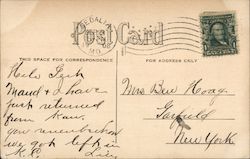 SEDALIA
MO.
Post Card
THIS SPACE FOR CORRESPONDENCE
FOR ADDRESS ONLY
Maud & I have
just returned
from
you remember
we got left in
K.C.
Mrs Ben
Garfield
New York